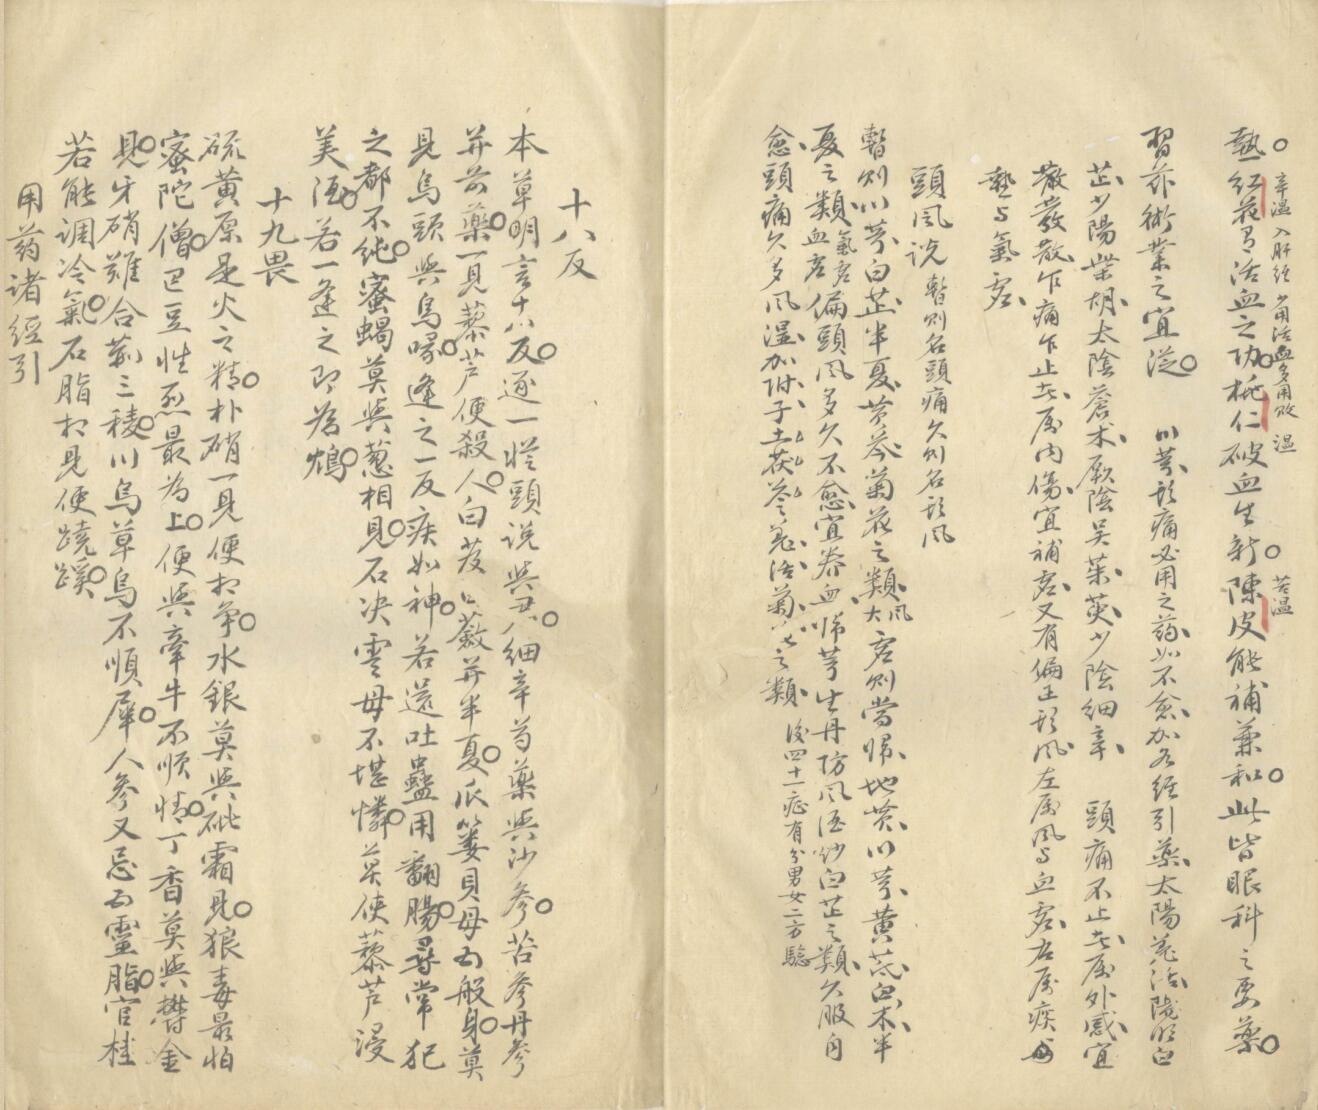 辛温 入肝經 少用活血多用破 温 苦温
熱紅花有活血之功桃仁破血生新陳皮能補兼和此皆眼科之要藥
習於術業之宜從 川芎頭痛必用之藥如不愈加各經引藥太陽羌活陽明白
芷少陽柴胡太陰蒼术厥陰吳茱萸少陰細辛 頭痛不止者屬外感宜
發散乍痛乍止者屬内傷宜補虛又有偏正頭風左屬風与血虛右屬痰與
熱与氣虛
頭風說 暫則名頭痛久則名頭風
暫則川芎白芷半夏黄芩菊花之類風大虛則當歸地黄川芎黄芪白术半
夏之類血虛氣虛偏頭風多久不愈宜養血歸芎生丹防風酒炒白芷之類久服自
愈頭痛久多風濕加附子土茯苓羌活菊花之類 後四十一症有分男女二方驗
十八反
本草明言十八反逐一從頭說與君人細辛芍藥與沙參苦參丹參
并前藥一見藜芦便殺人白芨白蘞并半夏瓜蔞貝母五般身莫
見烏頭與烏喙逢之一反疾如神若還吐蠱用翻腸尋常犯
之都不純蜜蠟莫與葱相見石决雲母不堪憐莫使藜芦浸
美酒若一逢之即為鴆
十九畏
硫黄原是火之精朴硝一見便相争水銀莫與砒霜見狼毒最怕
蜜陀僧巴豆性烈最為上便與牽牛不順情丁香莫與鬱金
見牙硝難合荊三稜川烏草烏不順犀人參又忌五靈脂官桂
若能調冷氣石脂相見便蹺蹊
用药诸經引